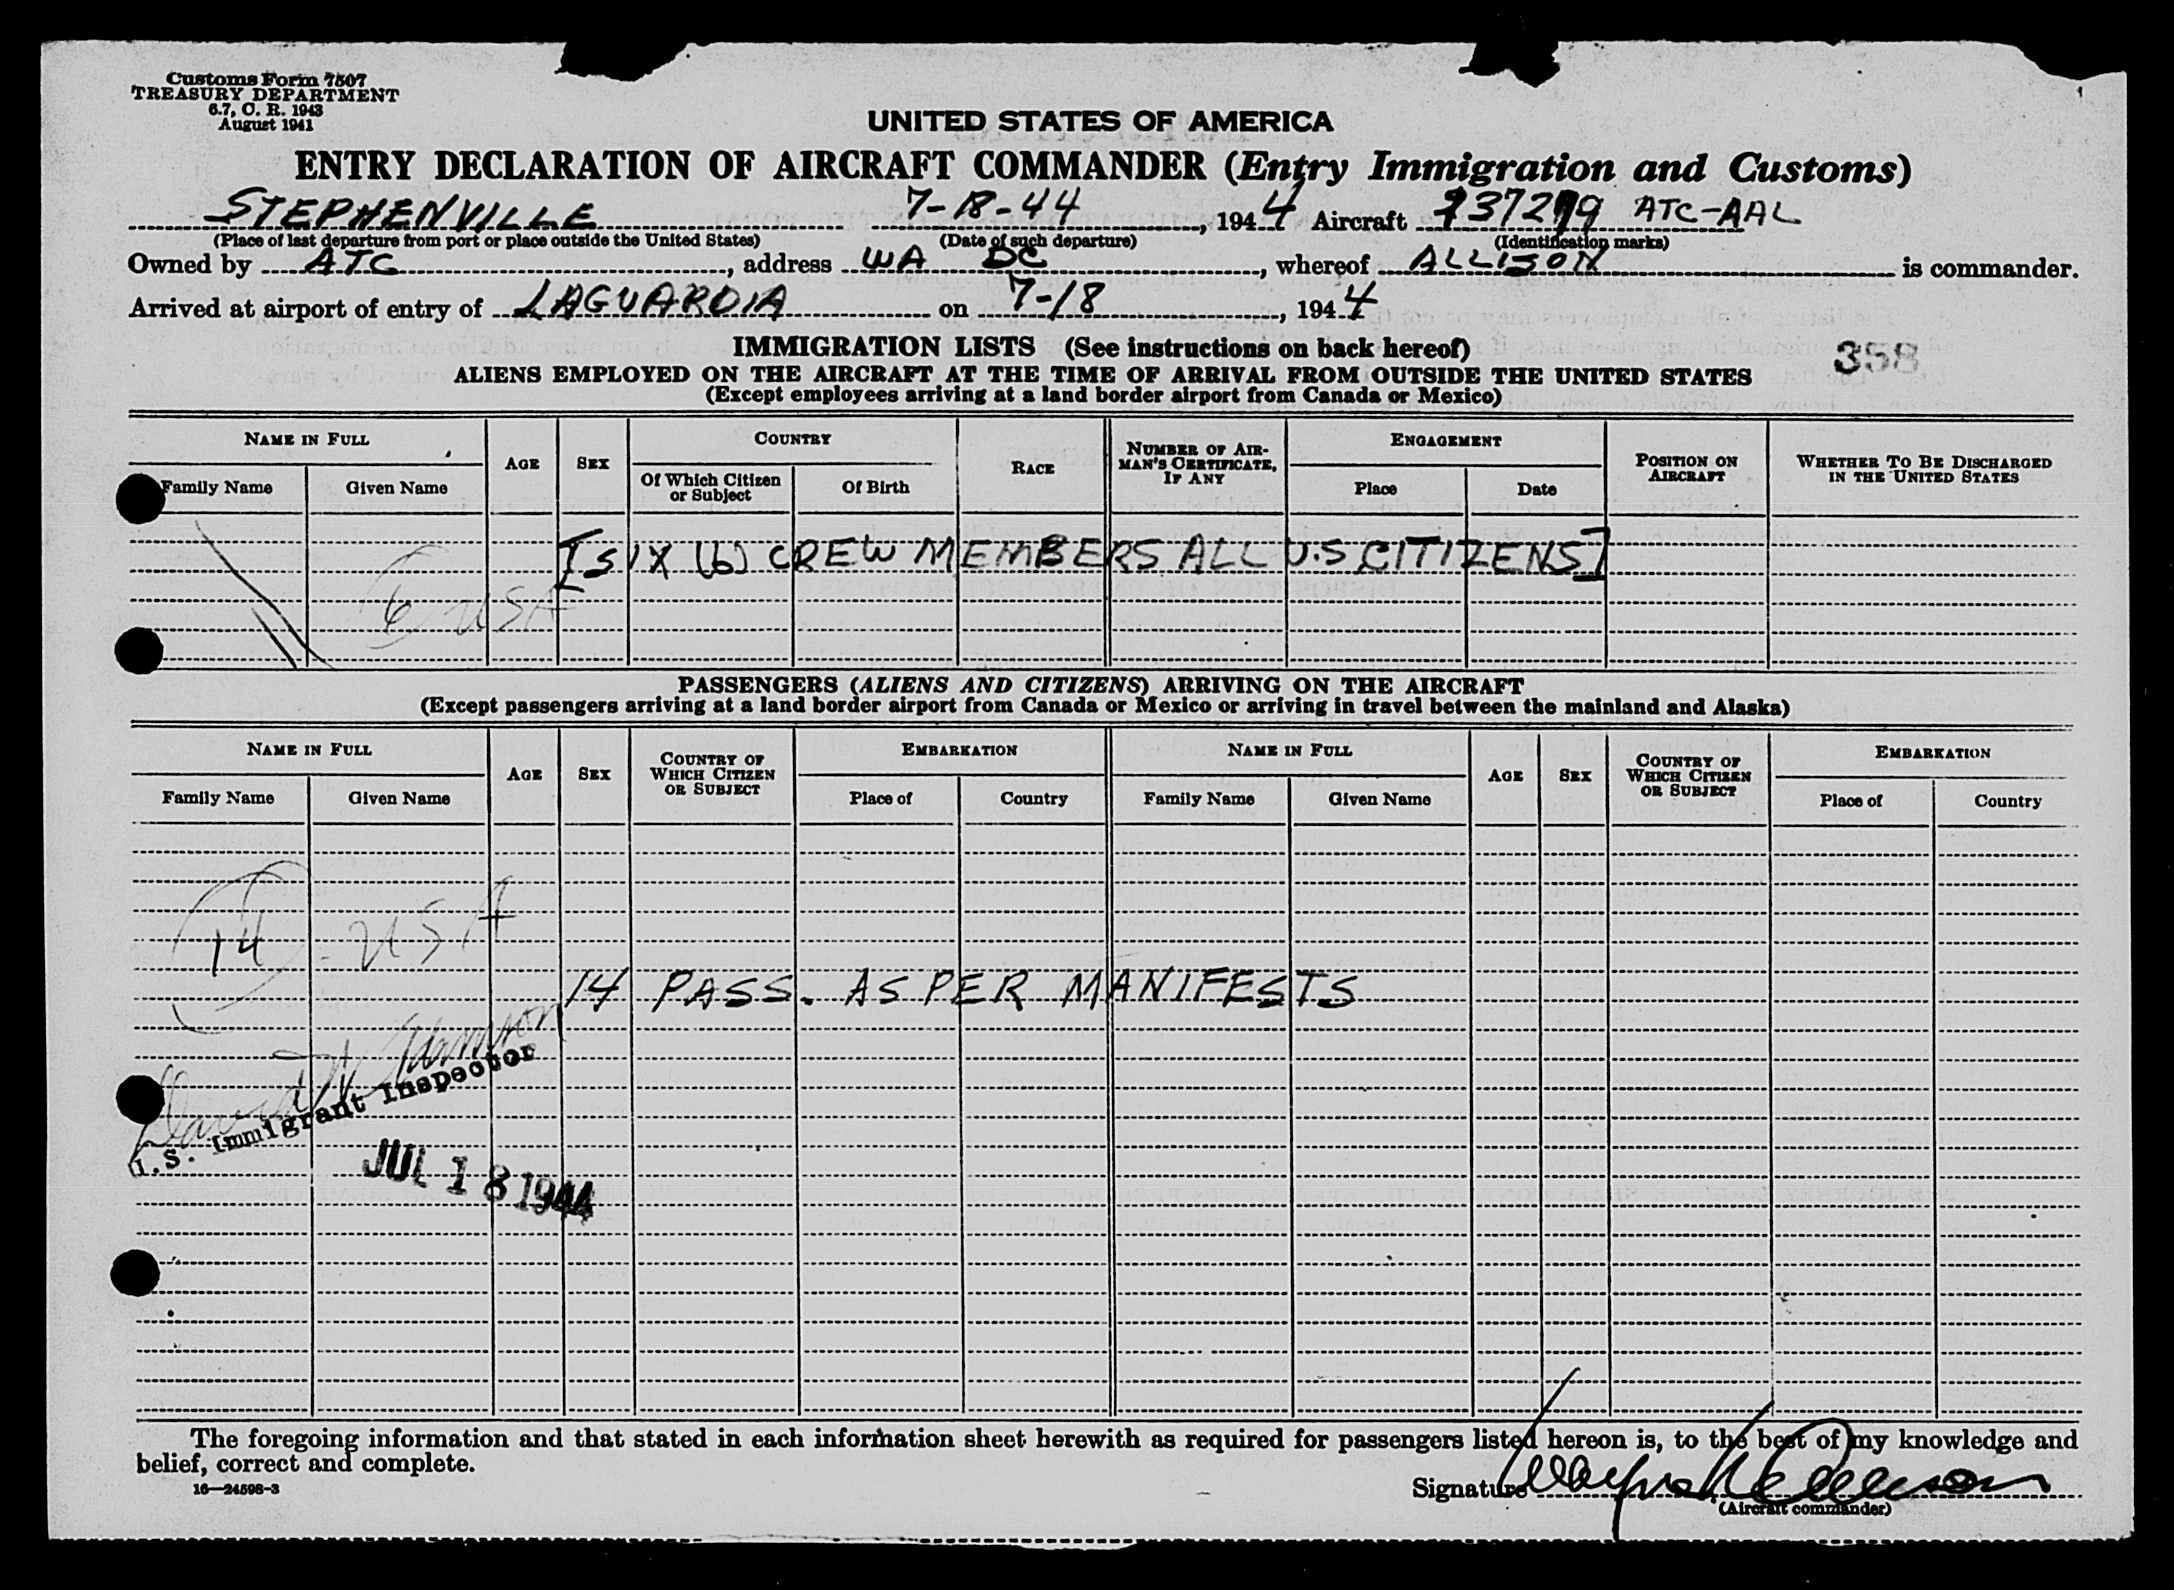 Customs Form 7507
TREASURY DEPARTMENT
6.7, C. R. 1943
August 1941
UNITED STATES OF AMERICA
ENTRY DECLARATION OF AIRCRAFT COMMANDER (Entry Immigration and Customs)
STEPHENVILLE 7-18-44, 1944 Aircraft ATC-AAL
(Place of last departure from port or place outside the United States) (Date of such departure) (Identification marks)
Owned by ATC, address WA DC, whereof ALLISON is commander.
Arrived at airport of entry of LAGUARDIA on 7-18, 1944
IMMIGRATION LISTS (See instructions on back hereof)
358
ALIENS EMPLOYED ON THE AIRCRAFT AT THE TIME OF ARRIVAL FROM OUTSIDE THE UNITED STATES
(Except employees arriving at a land border airport from Canada or Mexico)
NAME IN FULL AGE SEX COUNTRY RACE NUMBER OF AIRMAN'S CERTIFICATE, IF ANY ENGAGEMENT POSITION ON AIRCRAFT WHETHER TO BE DISCHARGED IN THE UNITED STATES
Family Name Given Name Of Which Citizen or Subject Of Birth Place Date
[SIX (6) CREW MEMBERS ALL U.S CITIZENS]
6 USA
PASSENGERS (ALIENS AND CITIZENS) ARRIVING ON THE AIRCRAFT
(Except passengers arriving at a land border airport from Canada or Mexico or arriving in travel between the mainland and Alaska)
NAME IN FULL AGE SEX COUNTRY OF WHICH CITIZEN OR SUBJECT EMBARKATION NAME IN FULL AGE SEX COUNTRY OF WHICH CITIZEN OR SUBJECT EMBARKATION
Family Name Given Name Place of Country Family Name Given Name Place of Country
14 - USA
14 PASS. AS PER MANIFESTS
David
U.S. Immigrant Inspector
JUL 18 1944
The foregoing information and that stated in each information sheet herewith as required for passengers listed hereon is, to the best of my knowledge and
belief, correct and complete.
16—24598-3
Signature
(Aircraft commander)